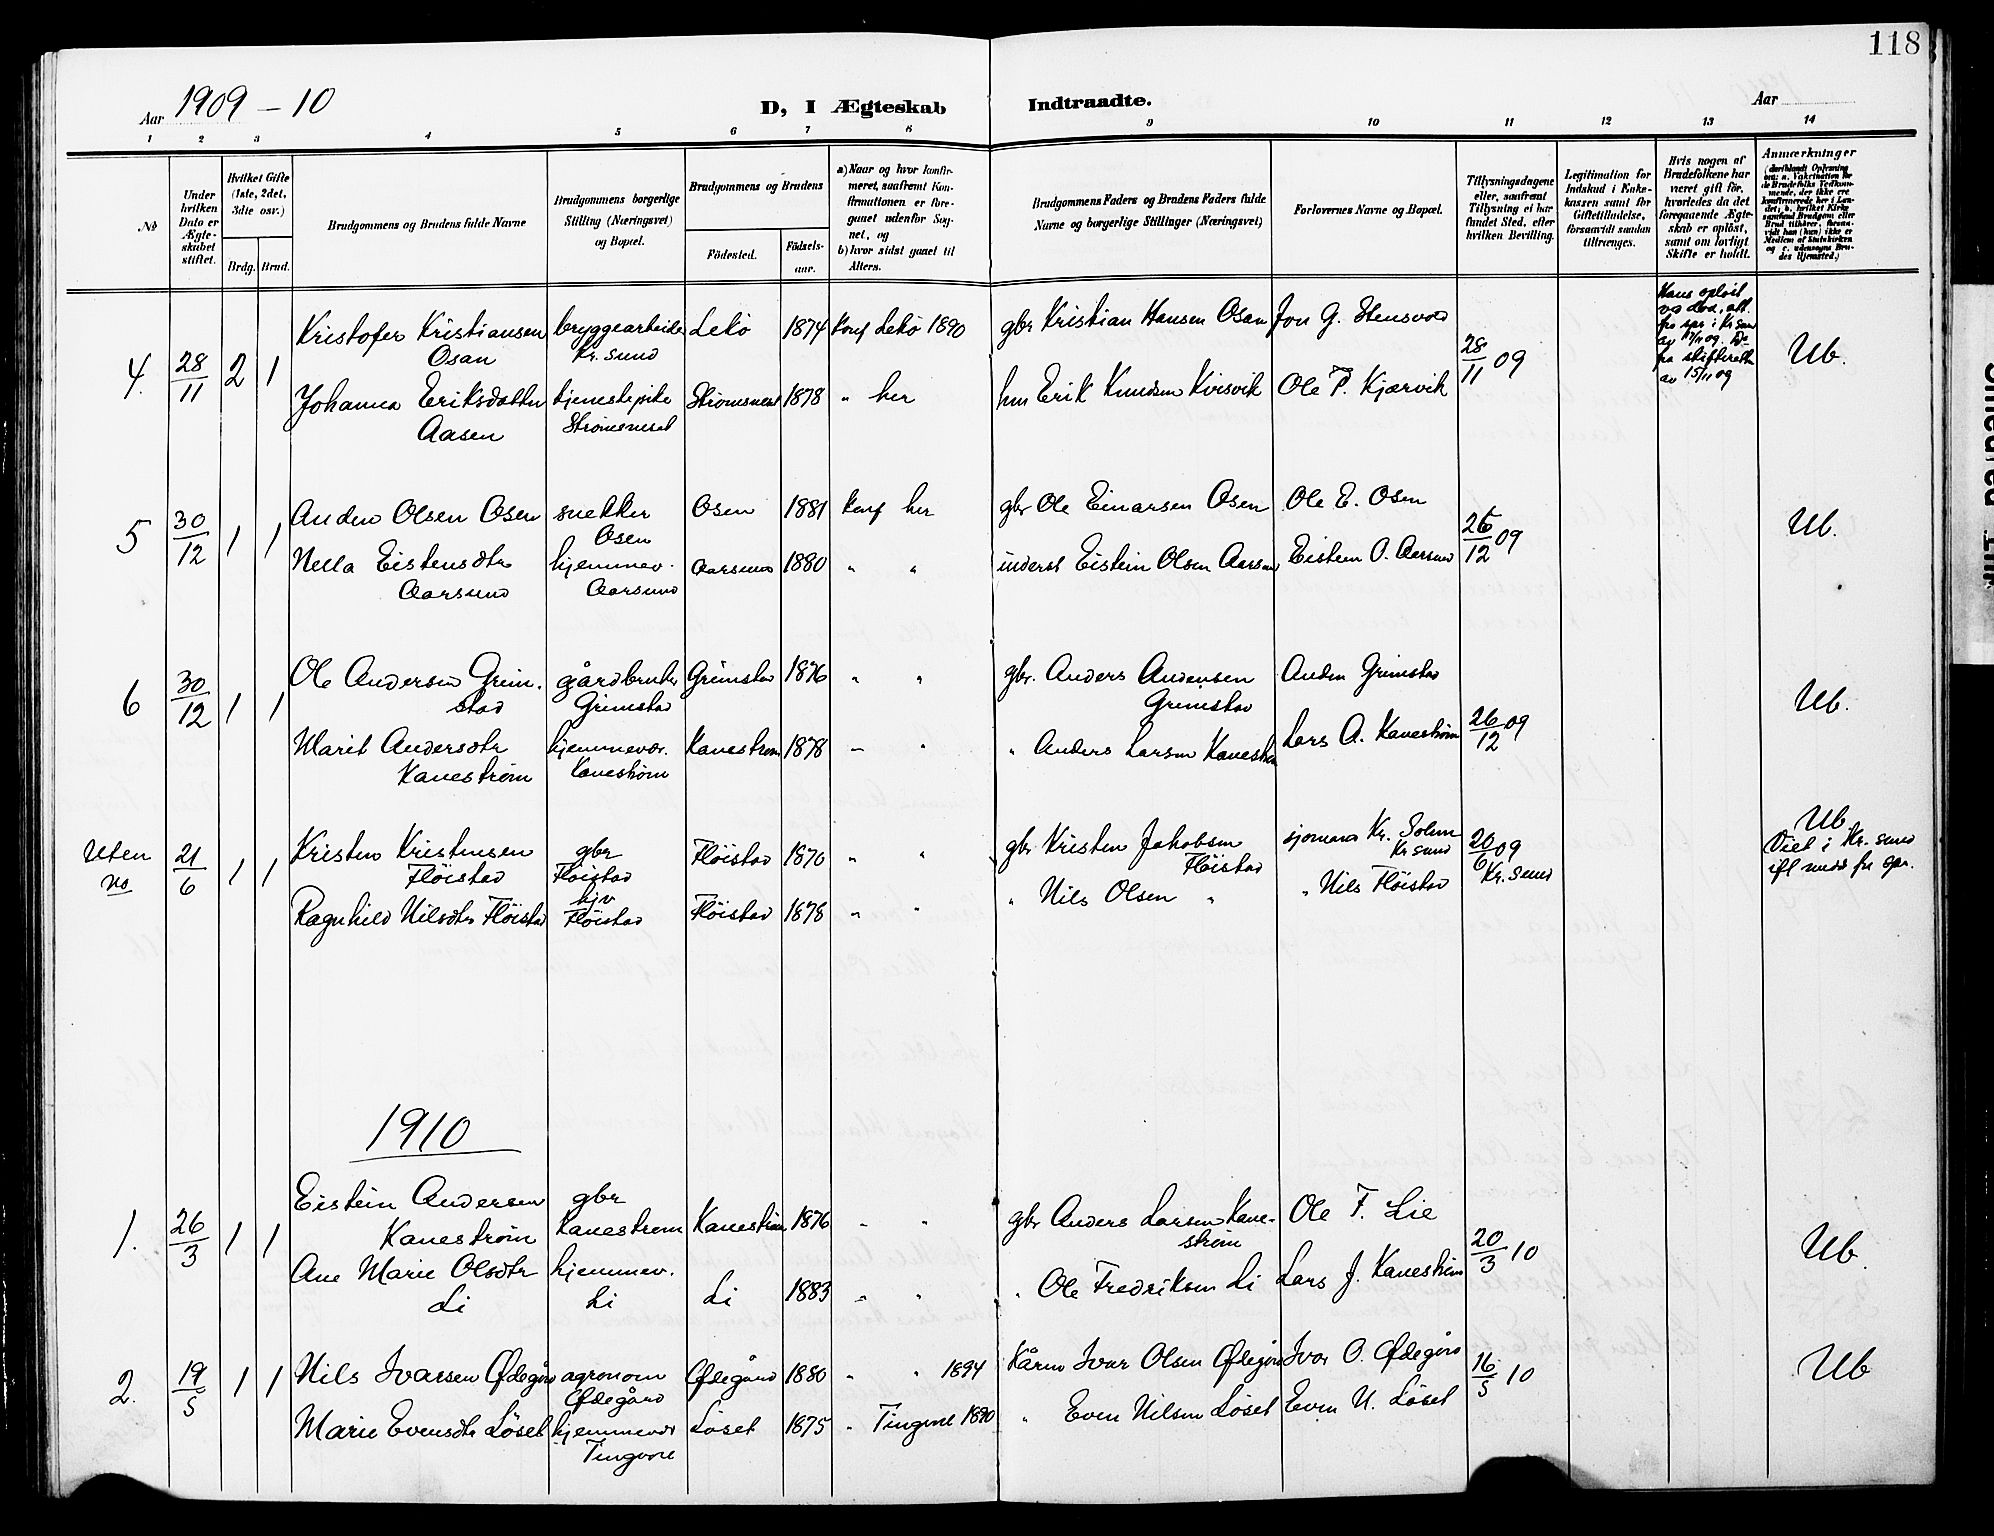 118
Aar 1909 – 10
D, I Ægteskab Indtraadte.
Aar
1 2 3 4 5 6 7 8 9 10 11 12 13 14
No
Under hvilken Dato er Ægteskabet stiftet.
Hvilket Gifte (1ste, 2det, 3dte osv.)
Brdg. Brud.
Brudgommens og Brudens fulde Navne
Brudgommens borgerlige Stilling (Næringsvei) og Bopæl.
Brudgommens og Brudens
Fødested.
Fødselsaar.
a) Naar og hvor konfirmeret, saafremt Konfirmationen er foregaaet udenfor Sognet, og
b) hvor sidst gaaet til Alters.
Brudgommens Faders og Brudens Faders fulde Navne og borgerlige Stillinger (Næringsvei)
Forlovernes Navne og Bopæl.
Tillysningsdagene eller, saafremt Tillysning ei har fundet Sted, efter hvilken Bevilling.
Legitimation for Indskud i Enkekassen samt for Giftetilladelse, forsaavidt saadan tiltrænges.
Hvis nogen af Brudefolkene har været gift før, hvorledes da det foregaaende Ægteskab er opløst, samt om lovligt Skifte er holdt.
Anmærkninger
4. 28/11 2 1
Kristofer Kristiansen Osan
bryggearbeide Kr. sund
Lekø 1874 Konf Lekø 1890
gbr Kristian Hansen Osan
Jon G. Stensvod
28/11 09
Ub.
Johanna Eriksdatter Aasen
tjenestepike Strømsneset
Strømsneset 1878 " her
hm Erik Knudsen Kvisvik
Ole P. Kjærvik
5 30/12 1 1
Anders Olsen Osen
snekker Osen
Osen 1881 Konf her
gbr Ole Einarsen Osen
Ole E. Osen
26/12 09
Ub.
Nella Eistensdtr Aarsund
hjemmev. Aarsund
Aarsund 1880 " "
inderst Eistein Olsen Aarsun
Eistein O. Aarsund
6 30/12 1 1
Ole Andersen Grimstad
gårdbruker Grimstad
Grimstad 1876 " "
gbr. Anders Andersen Grimstad
Anders Grimstad
26/12 09
Ub.
Marit Andersdtr Kanestrøm
hjemmevær. Kanestrøm
Kanestrøm 1878 – "
" Anders Larsen Kanestrøm
Lars A. Kanestrøm
Uten no 21/6 1 1
Kristen Kristensen Flöistad
gbr Flöistad
Flöistad 1870 " "
gbr Kristen Jakobsen Flöistad
sjømand Kr. Solem Kr sund
20/6 09 Kr. sund
Ub.
Viet i Kr. sund
Ragnhild Nilsdtr Flöistad
hjv Flöistad
Flöistad 1878 " "
" Nils Olsen "
" Nils Flöistad
1910
1. 26/3 1 1
Eistein Andersen Kanestrøm
gbr Kanestrøm
Kanestrøm 1876 " "
gbr Anders Larsen Kanestrøm
Ole F. Lie
20/3 10
Ub.
Ane Marie Olsdtr Li
hjemmev. Li
Li 1883 " "
" Ole Fredriksen Li
Lars J. Kanestrøm
2. 19/5 1 1
Nils Ivarsen Ødegård
agronom Ødegård
Ødegård 1880 " " 1894
Kårm Ivar Olsen Ødegård
Ivar O. Ødegård
16/5 10
Ub
Marie Evensdtr Löset
hjemmevær Tingvoll
Löset 1875 " Tingvoll 1890
" Even Nilsen Löset
Even N. Löset